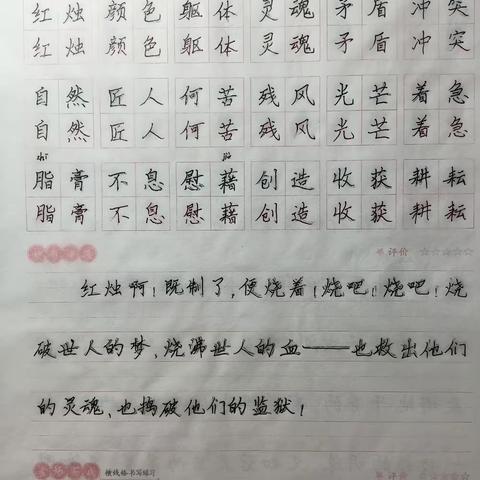 红烛 颜色 躯体 灵魂 矛盾 冲突
红烛 颜色 躯体 灵魂 矛盾 冲突
自然 匠人 何苦 残风 光芒 着急
自然 匠人 何苦 残风 光芒 着急
脂膏 不息 慰藉 创造 收获 耕耘
脂膏 不息 慰藉 创造 收获 耕耘
评价 ☆☆☆☆☆
红烛啊！既制了，便烧着！烧吧！烧吧！烧
破世人的梦，烧沸世人的血——也救出他们
的灵魂，也捣破他们的监狱！
横线格·书写练习
评价